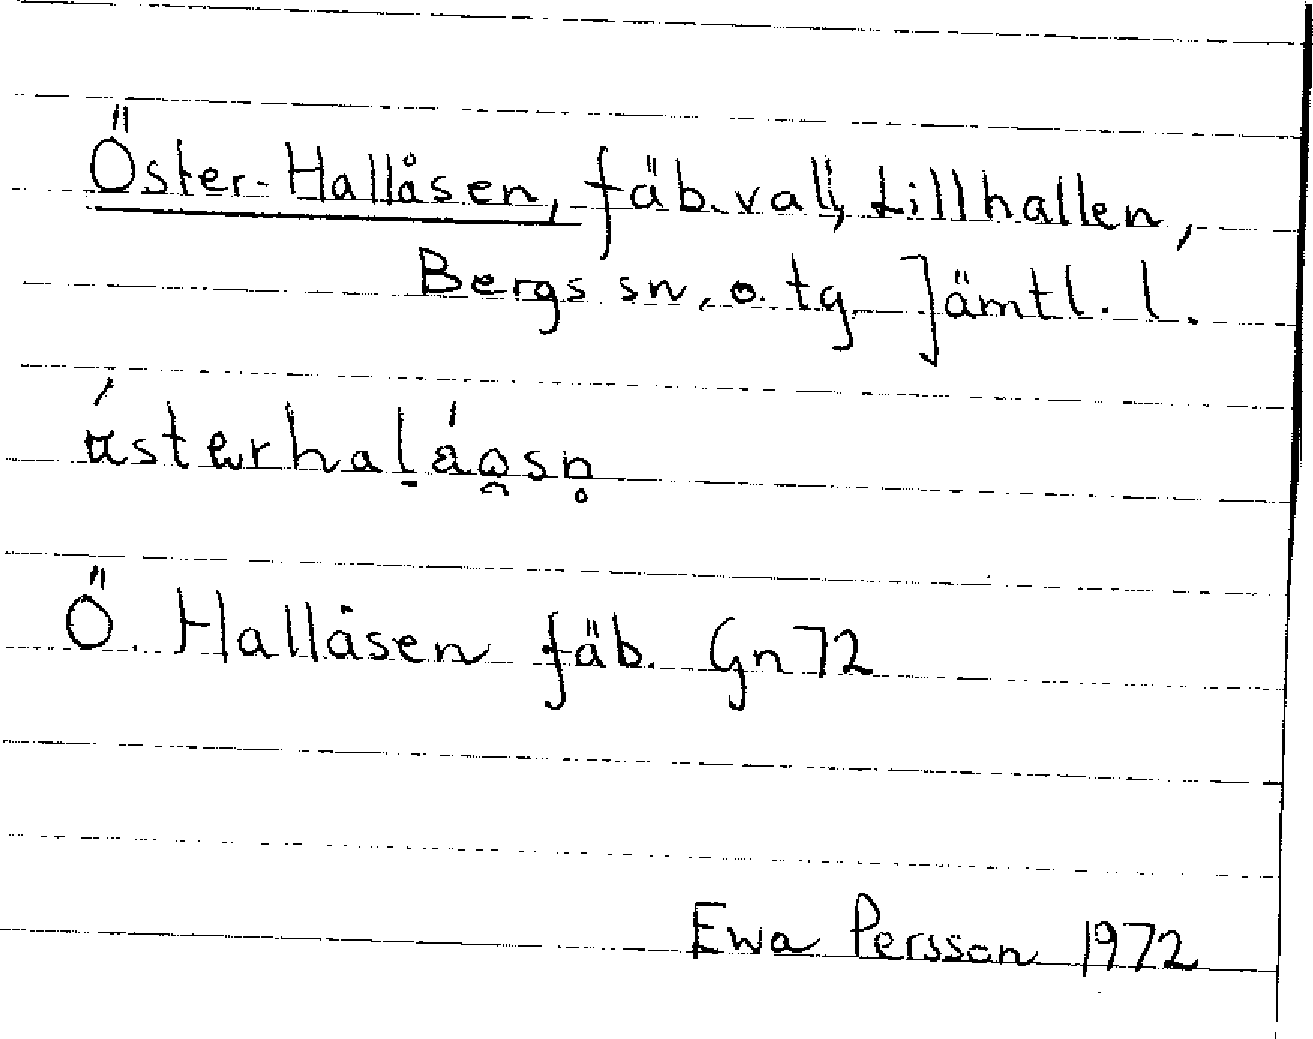 Öster-Hallåsen, fäb.vall, Lillhallen,
Bergs sn. o. tg Jämtl. l.
Ö. Hallåsen fäb. Gn 72
Ewa Persson 1972